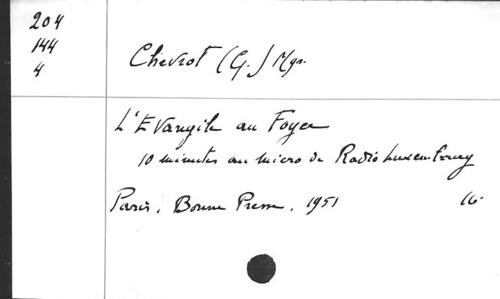 204
144
4
Chevrot (G.) Mgr.
L'Evangile au Foyer
10 minutes au micro de Radio Luxembourg
Paris, Bonne Presse, 1951 16°